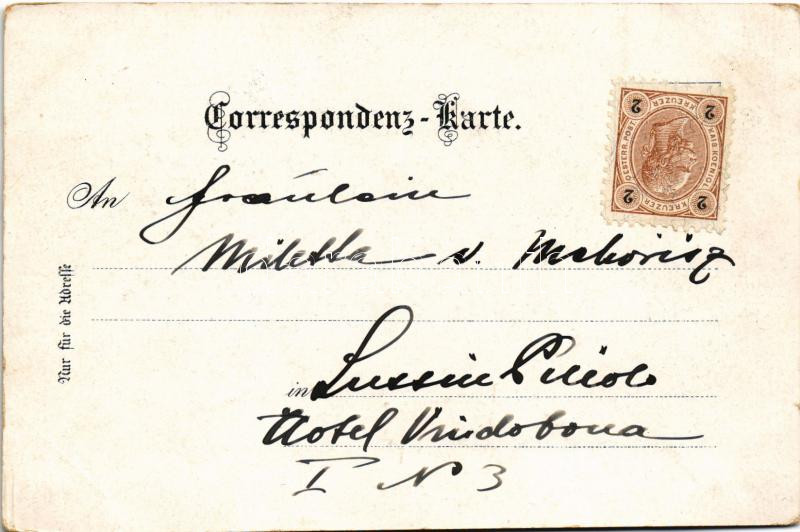 Correspondenz-Karte.
An Fräulein
Miletta v.
in Lussin Piccolo
Hotel Vindobona
I No 3
Nur für die Adresse
2 KREUZER 2
OESTERR. POST.
KAIS. KOENIGL.
2 KREUZER 2